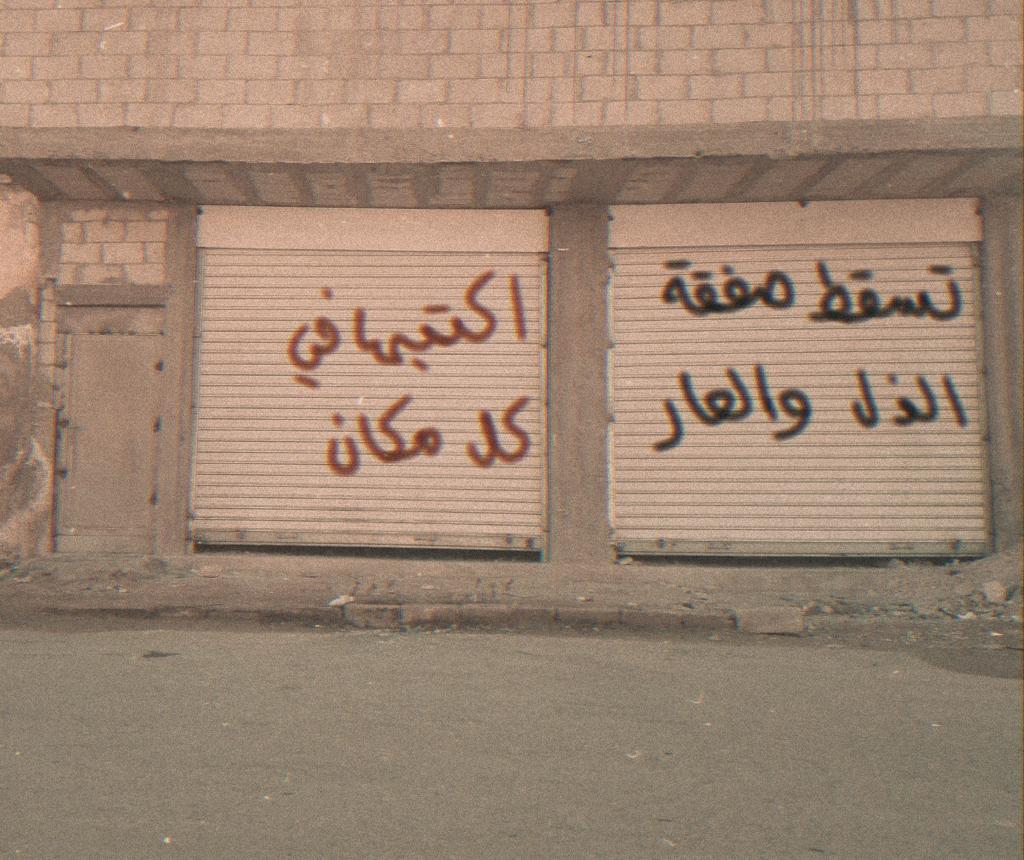 تسقط صفقة
الذل والعار
اكتبيها في
كل مكان